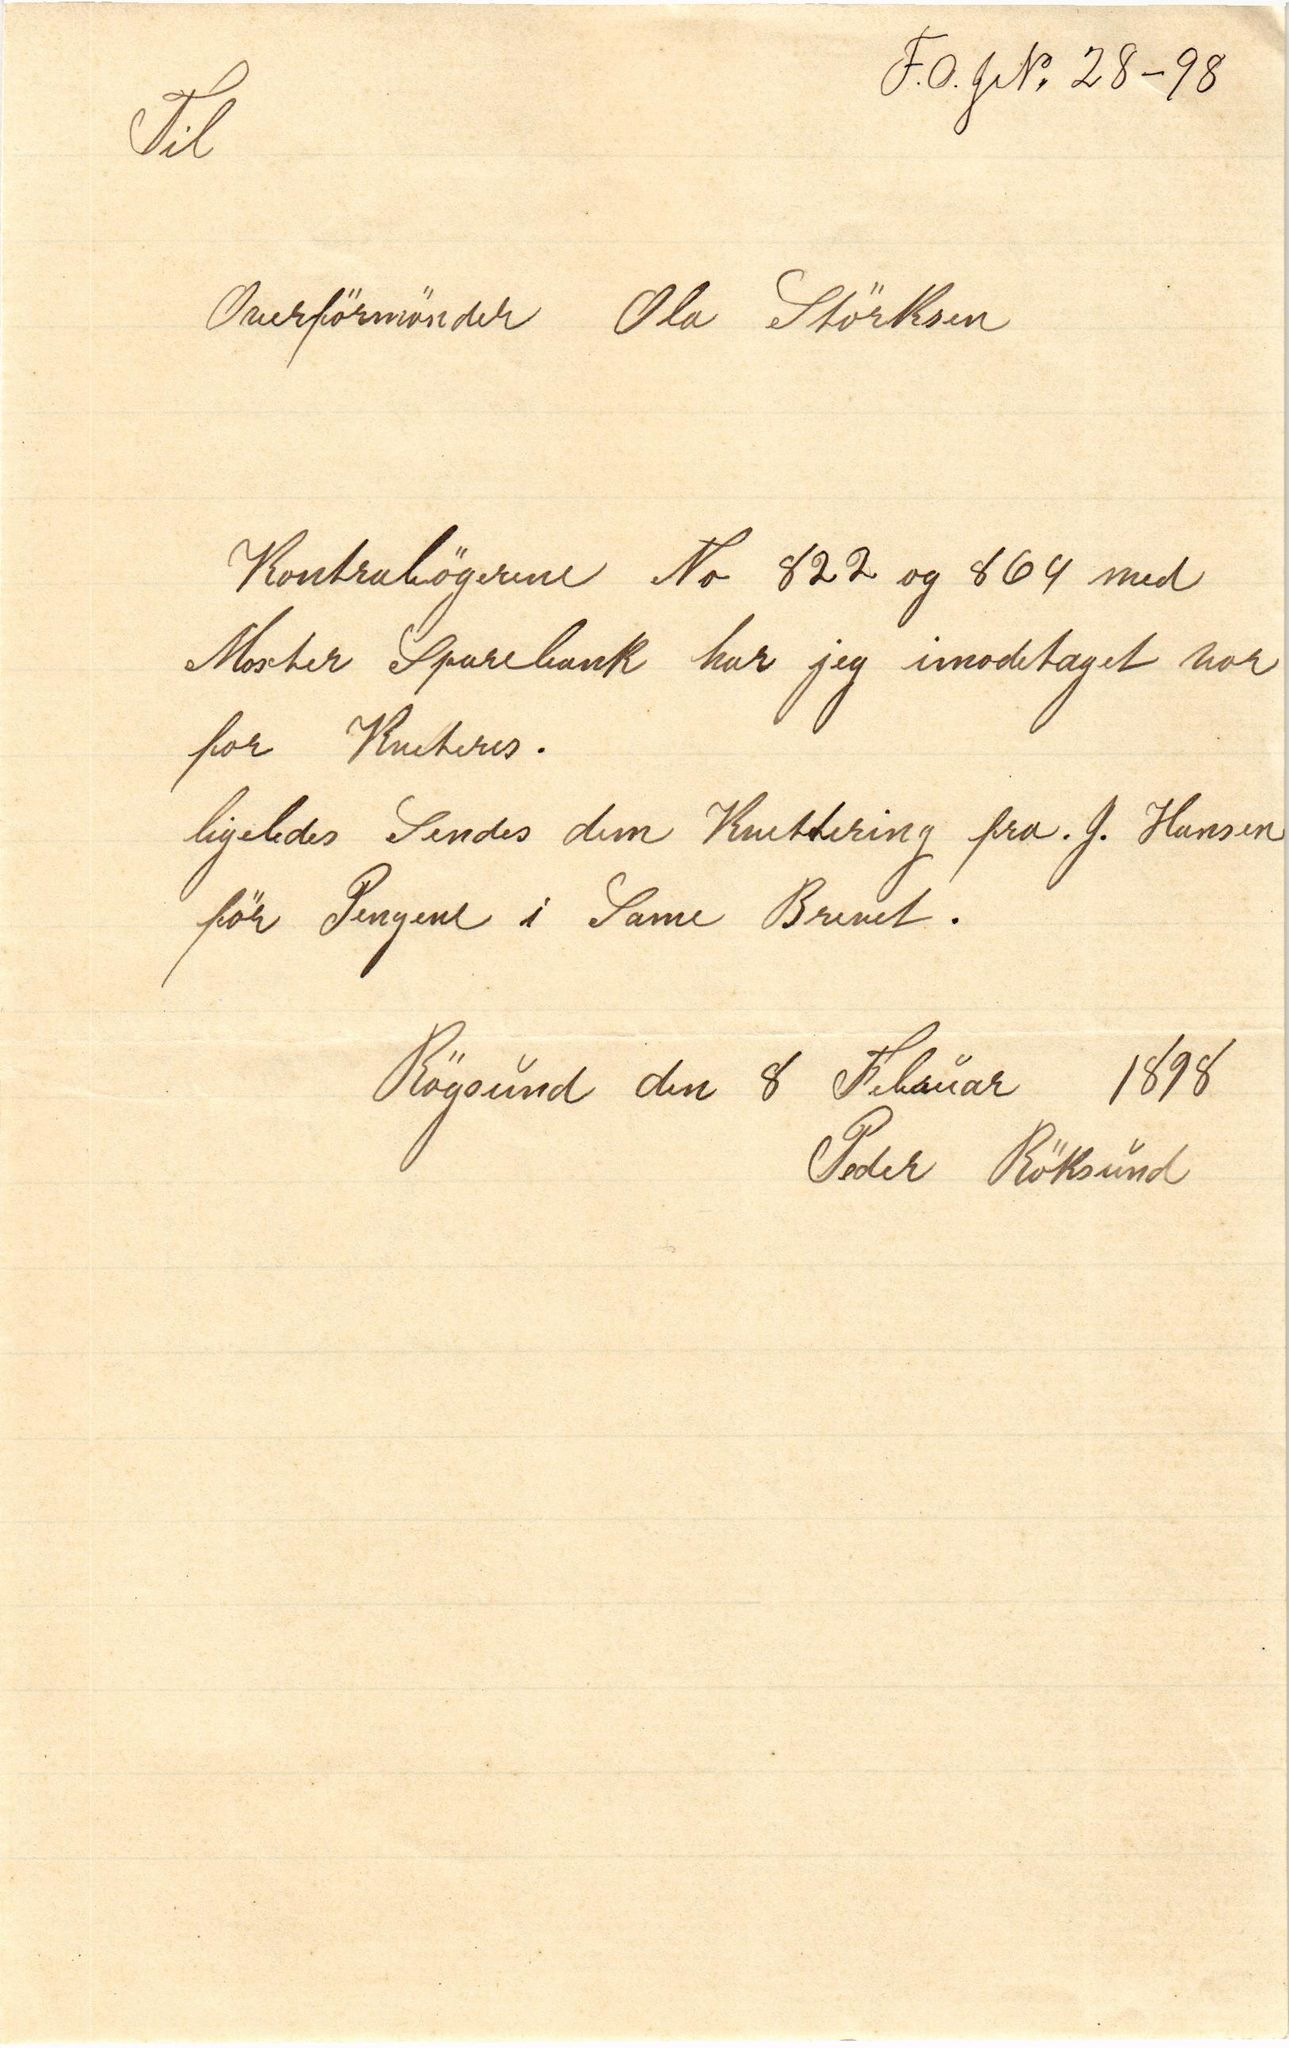 F.O. J.No. 28-98
Til
Overförmönder Ola Störksen
Kontrabögerene No 822 og 864 med
Moster Sparebank har jeg imodetaget vor
for Kveteres.
ligeledes Sendes dem Kvettering fra. J. Hansen
för Pengene i Same Brevet.
Rögsund den 8 Februar 1898
Peder Röksund